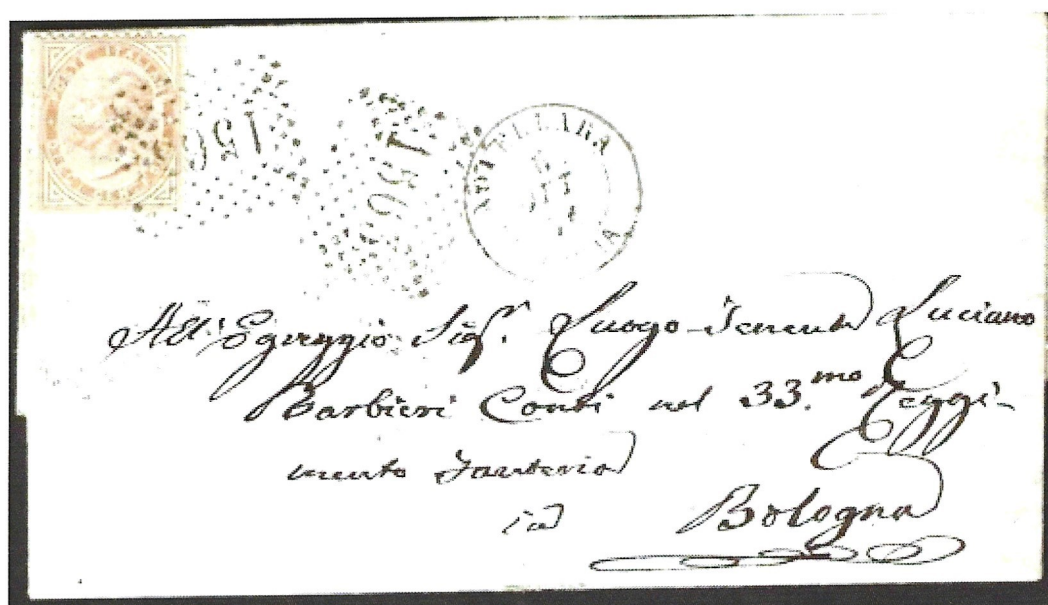 156
156
NOVELLARA
6
SET
All'Egreggio Sigr. Luogo-Tenente Luciano
Barbieri Conti nel 33.mo Reggi-
mento Fanteria
in Bologna